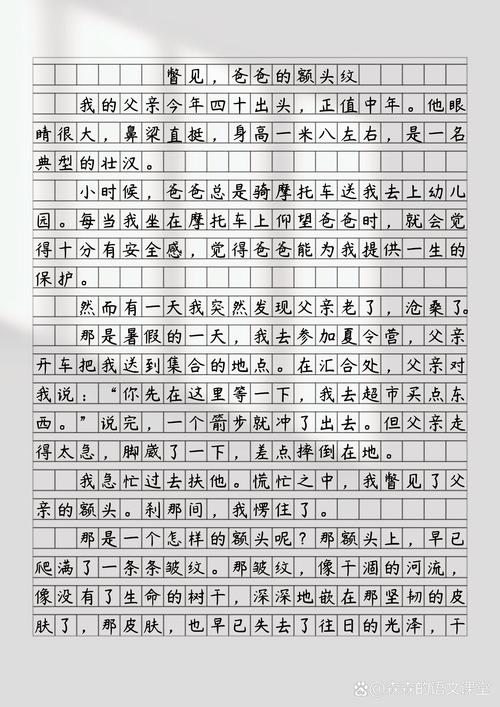 瞥见，爸爸的额头纹
我的父亲今年四十出头，正值中年。他眼
睛很大，鼻梁直挺，身高一米八左右，是一名
典型的壮汉。
小时候，爸爸总是骑摩托车送我去上幼儿
园。每当我坐在摩托车上仰望爸爸时，就会觉
得十分有安全感，觉得爸爸能为我提供一生的
保护。
然而有一天我突然发现父亲老了，沧桑了。
那是暑假的一天，我去参加夏令营，父亲
开车把我送到集合的地点。在汇合处，父亲对
我说：“你先在这里等一下，我去超市买点东
西。”说完，一个箭步就冲了出去。但父亲走
得太急，脚崴了一下，差点摔倒在地。
我急忙过去扶他。慌忙之中，我瞥见了父
亲的额头。刹那间，我愣住了。
那是一个怎样的额头呢？那额头上，早已
爬满了一条条皱纹。那皱纹，像干涸的河流，
像没有了生命的树干，深深地嵌在那坚韧的皮
肤了，那皮肤，也早已失去了往日的光泽，干
森森的语文课堂